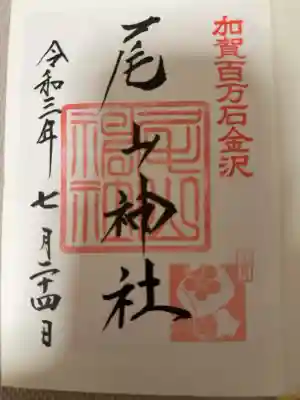 加賀百万石金沢
尾山神社
令和三年 七月二十四日
尾山神社